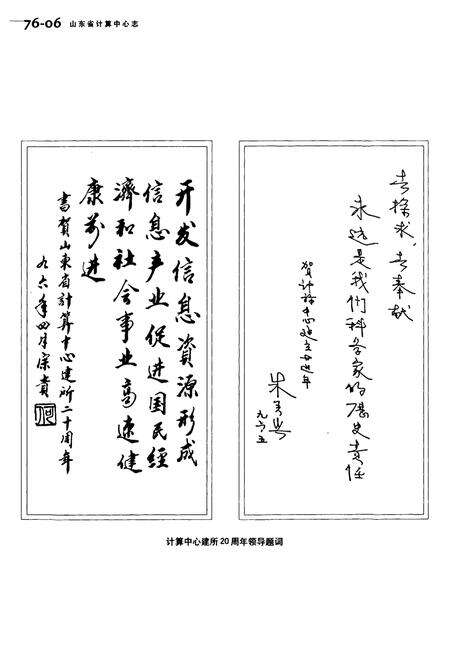 76-06 山东省计算中心志
开发信息资源形成
信息产业促进国民经
济和社会事业高速健
康前进
书贺山东省计算中心建所二十周年
九六年四月宗贵
去探求，去奉献
永远是我们科学家的历史责任
贺计算中心建立廿周年
九六、五
计算中心建所20周年领导题词